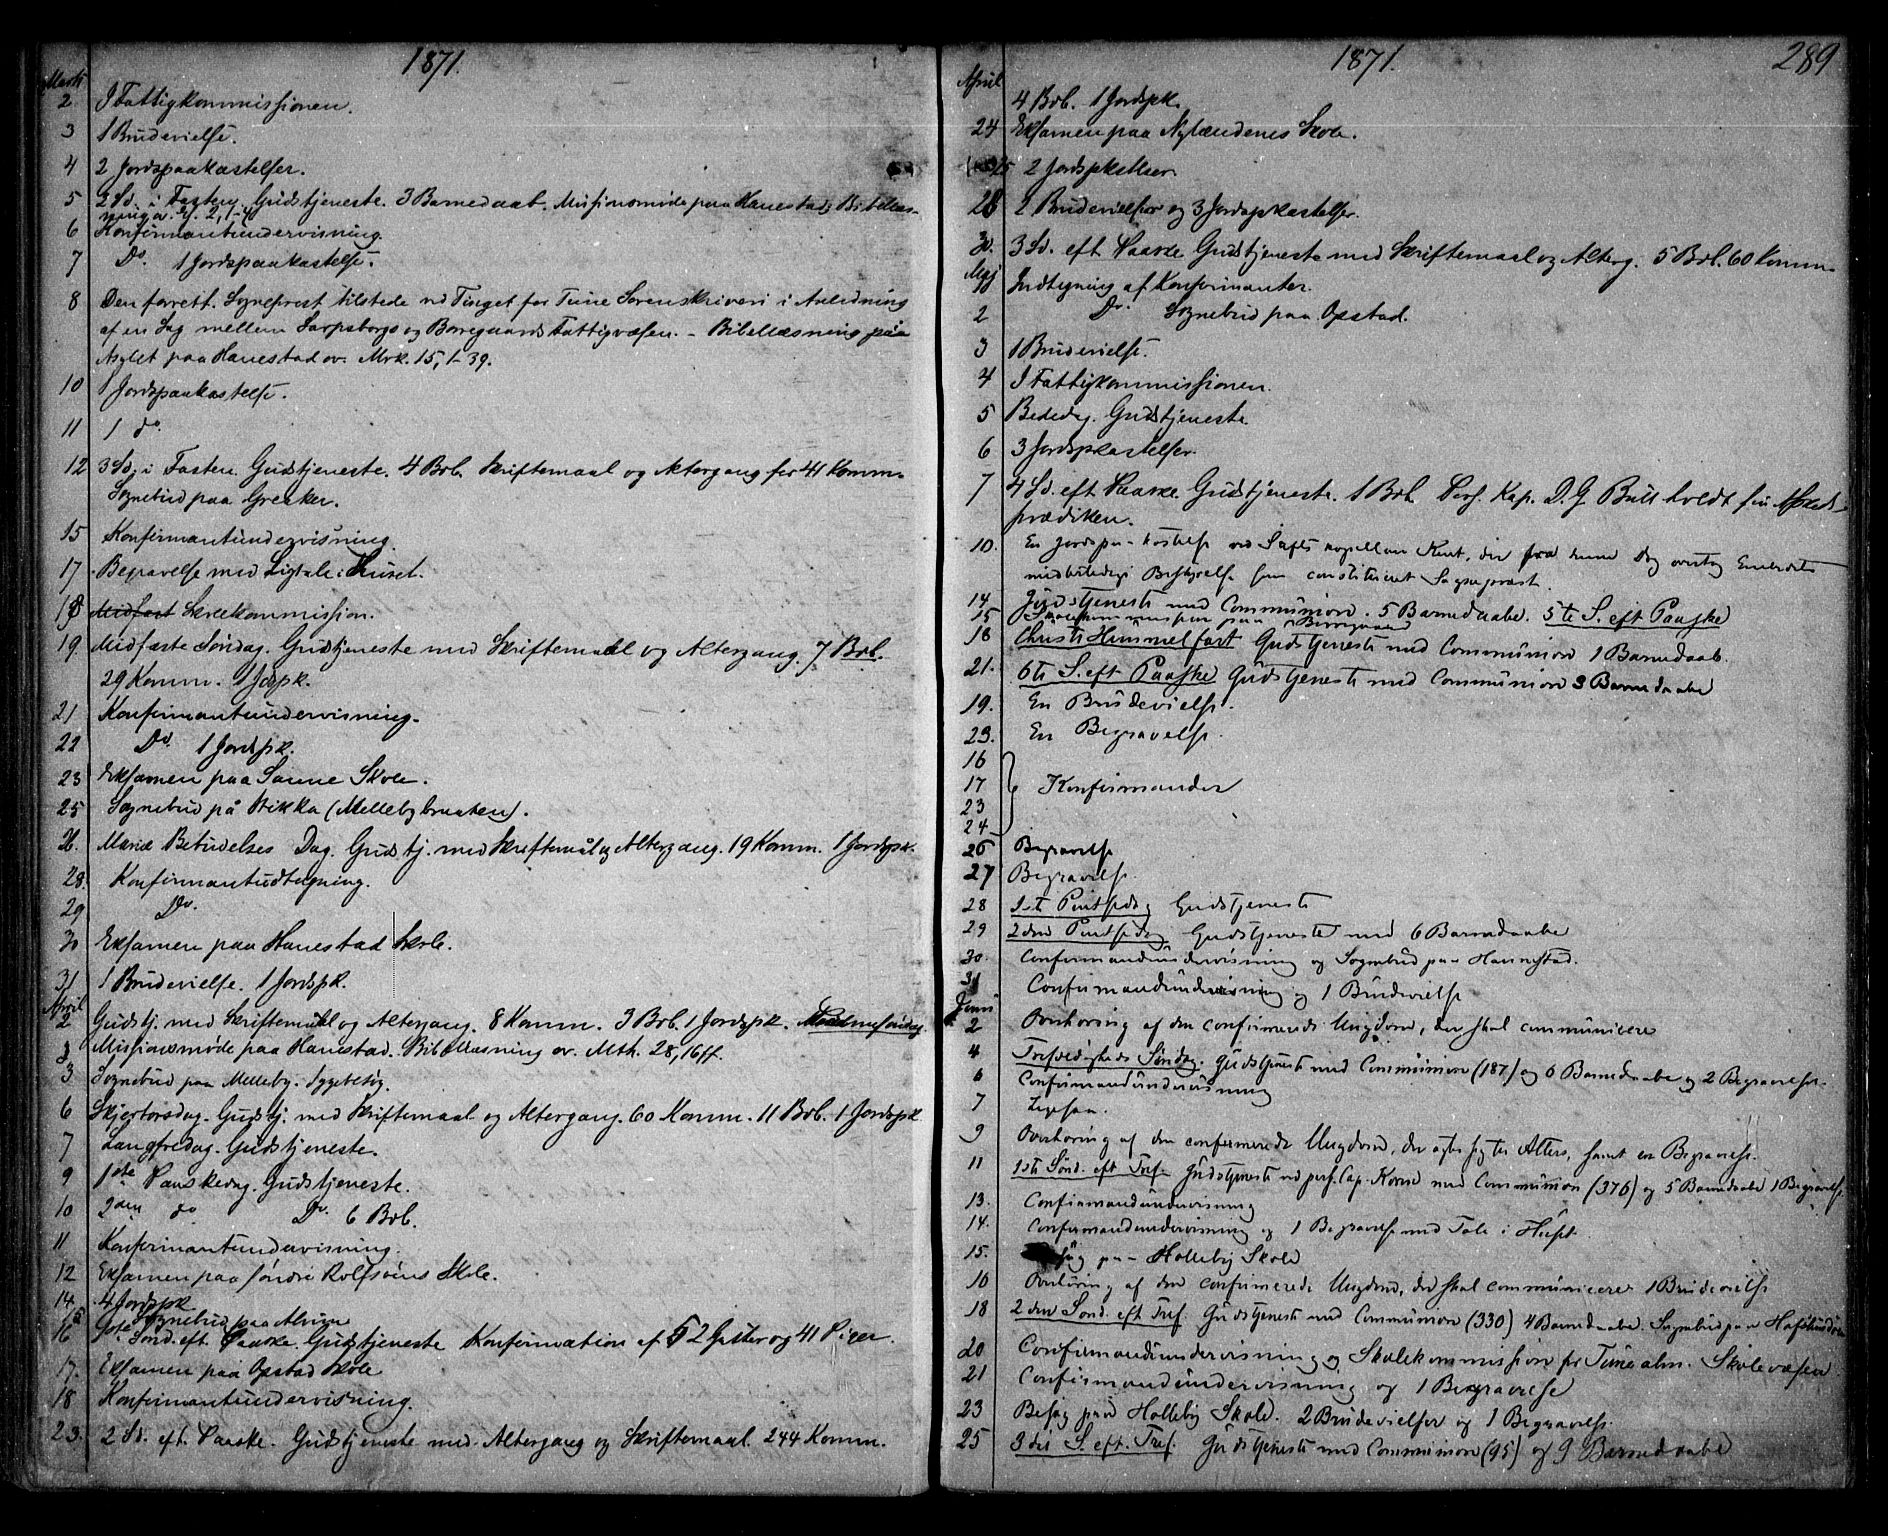 1871.
Marts
2 I Fattigkommissionen.
3 1 Brudevielse.
4 2 Jordspaakastelser.
5 2 Sd. i Fasten. Gudstjeneste. 3 Barnedaab. Missionsmøde paa Hanestad; Bibellæs-
ning 2, 1-
6 Konfirmantundervisning.
7 Do. 1 Jordspaakastelse.
8 Den forrett. Sogneprest tilstede ved Tinget for Tune Sorenskriveri i Anledning
af en Sag mellem Sarpsborgs og Borregaards Fattigvæsen. - Bibellæsning paa
Asylet paa Hanestad ov. Mrk. 15, 1-39.
10 1 Jordspaakastelse.
11 1 do
12 3 Sd. i Fasten. Gudstjeneste. 4 Brb. Skriftemaal og Altergang for 41 Komm.
Sognebud paa Greaker.
15 Konfirmantundervisning.
17 Begravelse med Ligtale i Huset.
18 Midfast Skolekommission.
19. Midfaste Søndag. Gudstjeneste med Skriftemaal og Altergang. 7 Brb.
29 Komm. 1 Jordspk.
21 Konfirmantundervisning.
22 Do. 1 Jordspk.
23 Eksamen paa Sanne Skole.
25 Sognebud på Stikka (Mellebybraaten).
26. Mariæ Bebudelses Dag. Gudstj. med Skriftemål og Altergang. 19 Komm. 1 Jordspk.
28. Konfirmantudtegning.
29 Do.
30 Eksamen paa Hanestad Skole.
31 1 Brudevielse. 1 Jordspk.
April
2 Gudstj. med Skriftemål og Altergang. 8 Komm. 3 Brb. 1 Jordspk. Palmesøndag
Missionsmøde paa Hanestad. Bibellæsning ov. Mth. 28, 16ff.
3 Sognebud paa Melleby. Sygebesøg.
6 Skjertorsdag. Gudstj. med Skriftemaal og Altergang. 60 Komm. 11 Brb. 1 Jordspk
7 Langfredag. Gudstjeneste.
9 1ste Paaskedag. Gudstjeneste.
10 2den do Do. 6 Brb.
11 Konfirmantundervisning.
12 Eksamen paa søndre Rolfsøens Skole.
14 4 Jordspk.
15 Sognebud paa Alvim
16 1ste Sønd. eft. Paaske. Gudstjeneste Konfirmation af 52 Gutter og 41 Piger.
17. Eksamen paa Opstad Skole
18 Konfirmantundervisning.
23. 2 Sd. eft. Paaske. Gudstjeneste med Altergang og Skriftemaal. 244 Komm.
1871. 289
April
4 Brb. 1 Jordspk.
24 Eksamen paa Nylændenes Skole.
25 2 Jordspkstlser.
28 2 Brudevielser og 3 Jordspkastelser.
30. 3 Sd. eft Paaske Gudstjeneste med Skriftemaal og Alterg. 5 Brb. 60 Komm.
Maj
1 Indtegning af Konfirmanter.
2 Do. Sognebud paa Opstad.
3 1 Brudevielse.
4 I Fattigkommissionen.
5 Bededag. Gudstjeneste.
6 3 Jordspkastelser.
7 4 Sd. eft Paaske Gudstjeneste. 1 Brb. Pers. Kap. D. G. Bull holdt sin Afskeds-
prædiken.
10. En Jordspaakastelse ved Stiftskapellan Kent, der fra denne Dag overtog Embedets
midlertidige Bestyrelse som constitueret Sogneprest
14 Gudstjeneste med Communion. 5 Barnedaabe. 5te S. eft Paaske
15 Skolekommission paa Borregaard
18 Christi Himmelfart Gudstjeneste med Communion 1 Barnedaab.
21. 6te S. eft Paaske Gudstjeneste med Communion 3 Barnedaabe
19. En Brudevielse.
23. En Begravelse.
16
17
23
24 Konfirmander
26 Begravelse
27 Begravelse.
28 1ste Pintsedag Gudstjeneste
29 2den Pintsedag Gudstjeneste med 6 Barnedaabe
30. Confirmandundervisning og Sognebud paa Hannestad.
31 Confirmandundervisning og 1 Brudevielse
Juni
2 Overhøring af den confirmerede Ungdom, der skal communicere
4 Trefoldigheds Søndag. Gudstjeneste med Communion (187) og 6 Barnedaabe og 2 Begravelser.
6 Confirmandundervisning
7 Ligsaa.
9 Overhøring af den confirmerede Ungdom, der agter sig til Alters, samt en Begravelse.
11 1ste Sønd. eft Tref. Gudstjeneste ved pers. Cap. Korne med Communion (376) og 5 Barnedaabe 1 Begravelse
13. Confirmandundervisning
14. Confirmandundervisning og 1 Begravelse med Tale i Huset
15. Besøg paa Holleby Skole
16 Overhøring af den confirmerede Ungdom, der skal communicere 1 Brudevielse
18 2den Sønd. eft Tref. Gudstjeneste med Communion (330) 4 Barnedaabe. Sognebud paa Hafslundsøen
20 Confirmandundervisning og Skolekommission for Tune alm. Skolevæsen
21 Confirmandundervisning og 1 Begravelse
23 Besøg paa Holleby Skole. 2 Brudevielser og 1 Begravelse.
25 3die S. eft. Tref. Gudstjeneste med Communion (95) og 9 Barnedaabe